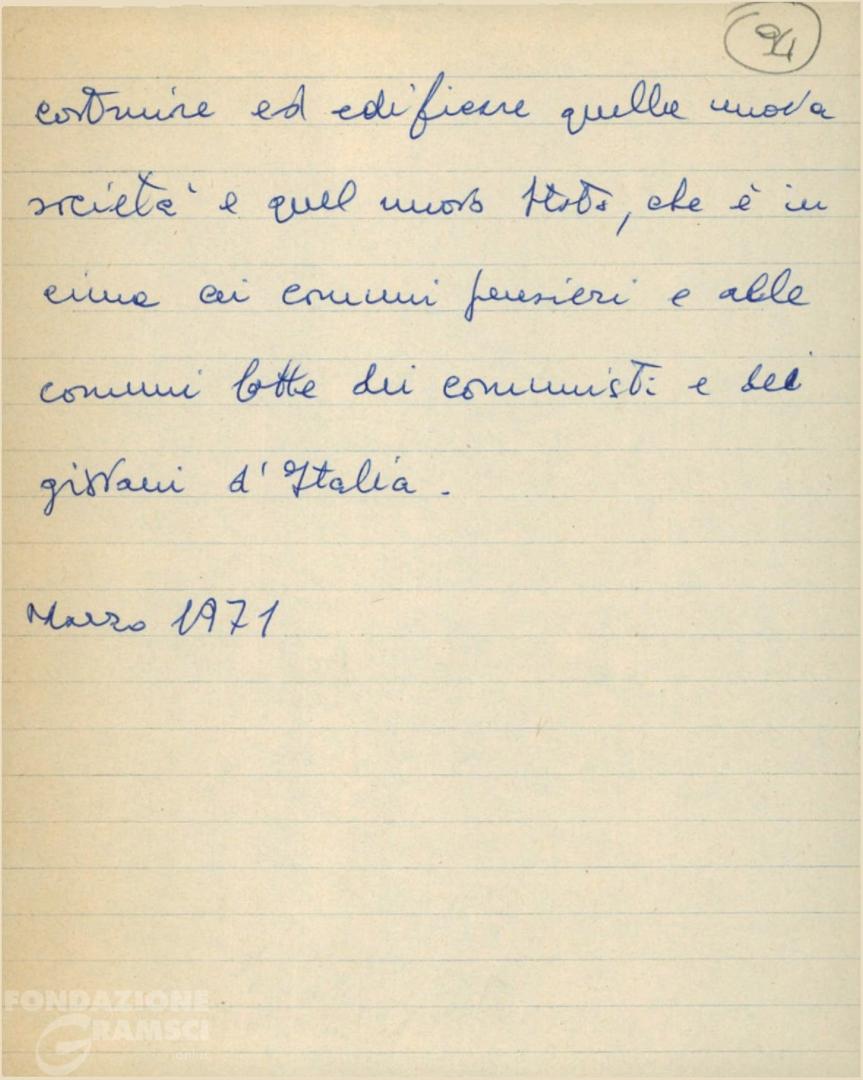 94
costruire ed edificare quella nuova
società e quel nuovo Stato, che è in
cima ai comuni pensieri e alle
comuni lotte dei comunisti e dei
giovani d'Italia.
Marzo 1971
FONDAZIONE
GRAMSCI